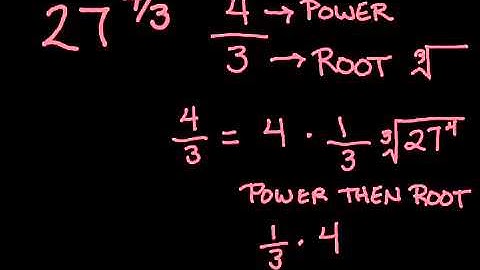 27^4/3 4/3 → POWER
→ ROOT ∛
4/3 = 4 · 1/3 ∛27^4
POWER THEN ROOT
1/3 · 4